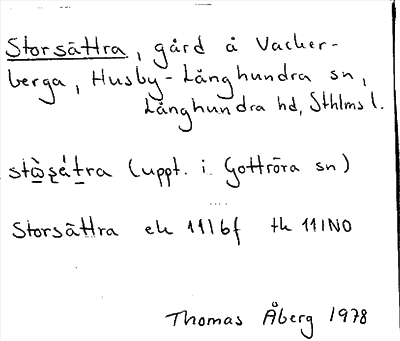 Storsättra, gård å Vacker-
berga, Husby-Långhundra sn,
Långhundra hd, Sthlms l.
(uppt. i Gottröra sn)
Storsättra ek 11I6f tk 11INO
Thomas Åberg 1978